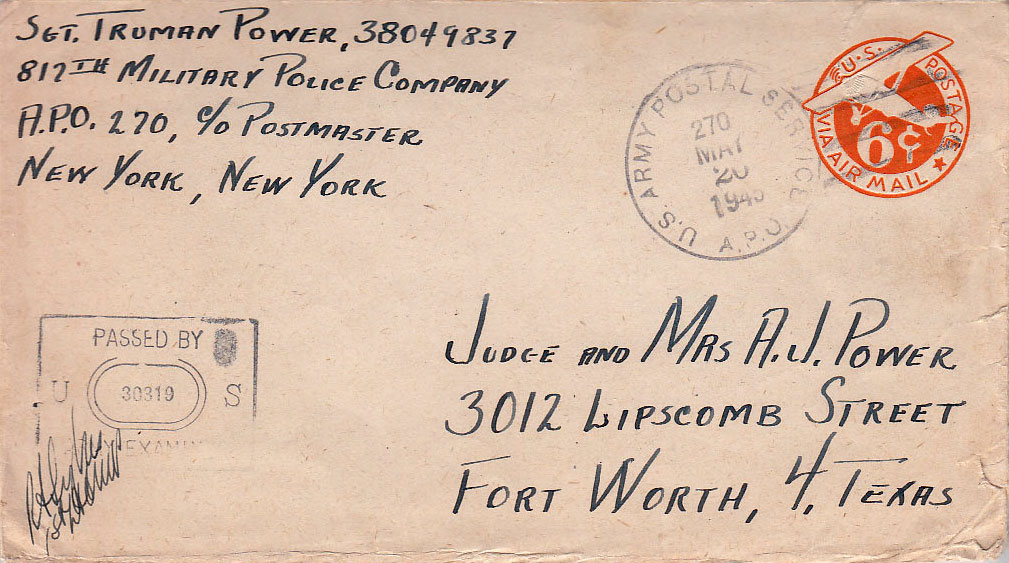 SGT. TRUMAN POWER, 38049837
817TH MILITARY POLICE COMPANY
A.P.O. 270, c/o POSTMASTER
NEW YORK, NEW YORK
U.S. ARMY POSTAL SERVICE
A.P.O.
270
MAY
20
1945
U.S. POSTAGE
6¢
VIA AIR MAIL
PASSED BY
U 30319 S
ARMY EXAMINER
JUDGE AND MRS A.J. POWER
3012 LIPSCOMB STREET
FORT WORTH, 4, TEXAS